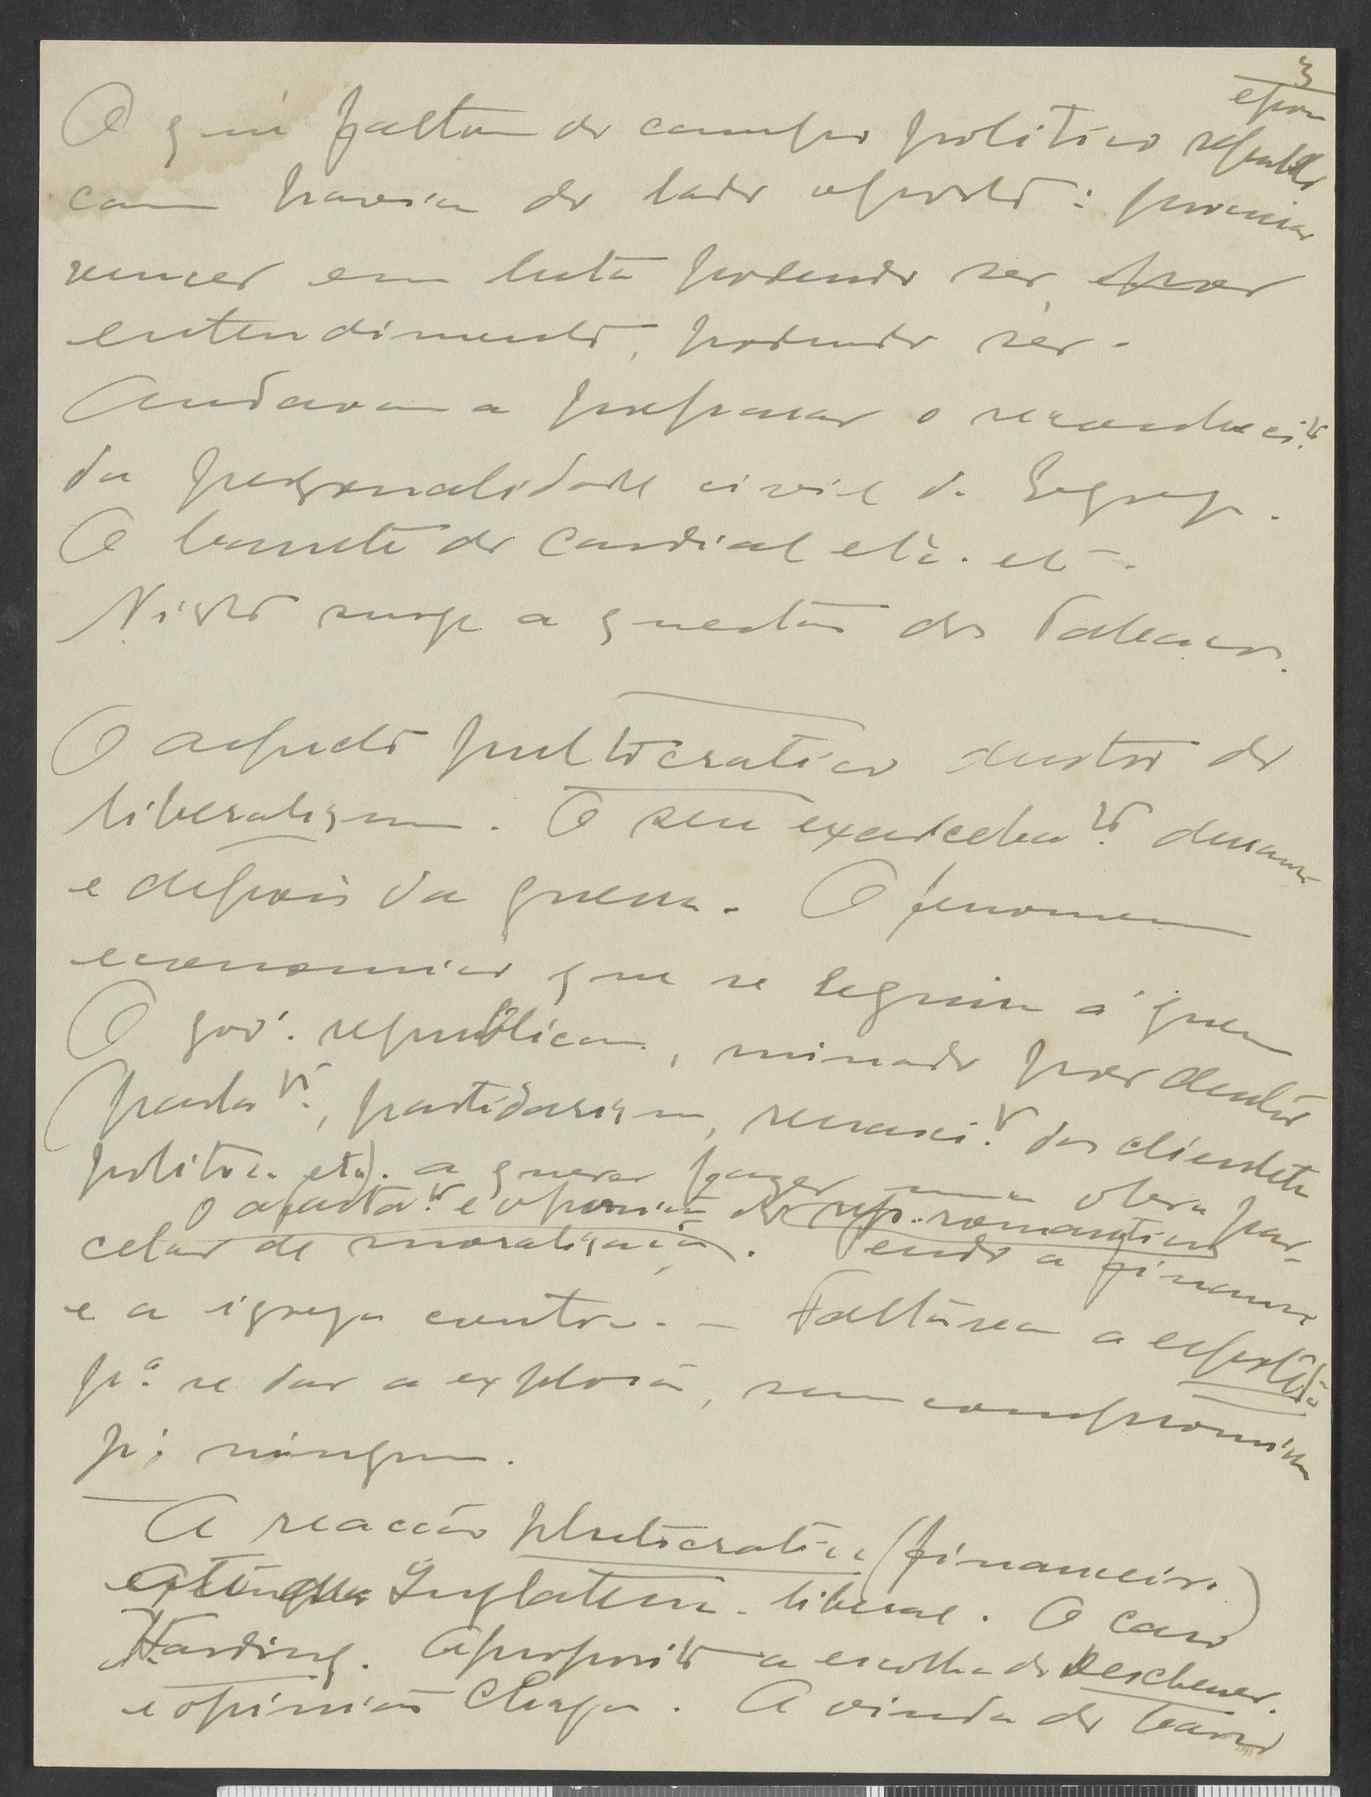 3
O que faltou do campo politico republi
cano havia do lado oposto: procurar
vencer em luta podendo ser, e por
entendimento, podendo ser.
Andavam a preparar o reconheci.to
da personalidade civil da Egreja.
O barrete do cardial etc. etc.
Nisto surge a questão dos Tabacos.
O aspecto plutocratico dentro do
liberalismo. O seu exarceba.to durante
e depois da guerra. O fenomeno
economico que se seguiu á guerra
O gov. republicano, minado por dentro
(partidarismo, renasci.to das clientelas
politicas etc). a querer fazer uma obra par-
O afasta.to e oposição do rep. romantico
celar de moralisação. Tendo a finança
e a igreja contra. - Faltava a
p.a se dar a explosão, sem compromisso
p. ninguem.
A reacção plutocratica (financeira)
Inglaterra liberal. O caso
Harding. A proposito a escolha do Deschanel
e opinião Chagas. A vinda do